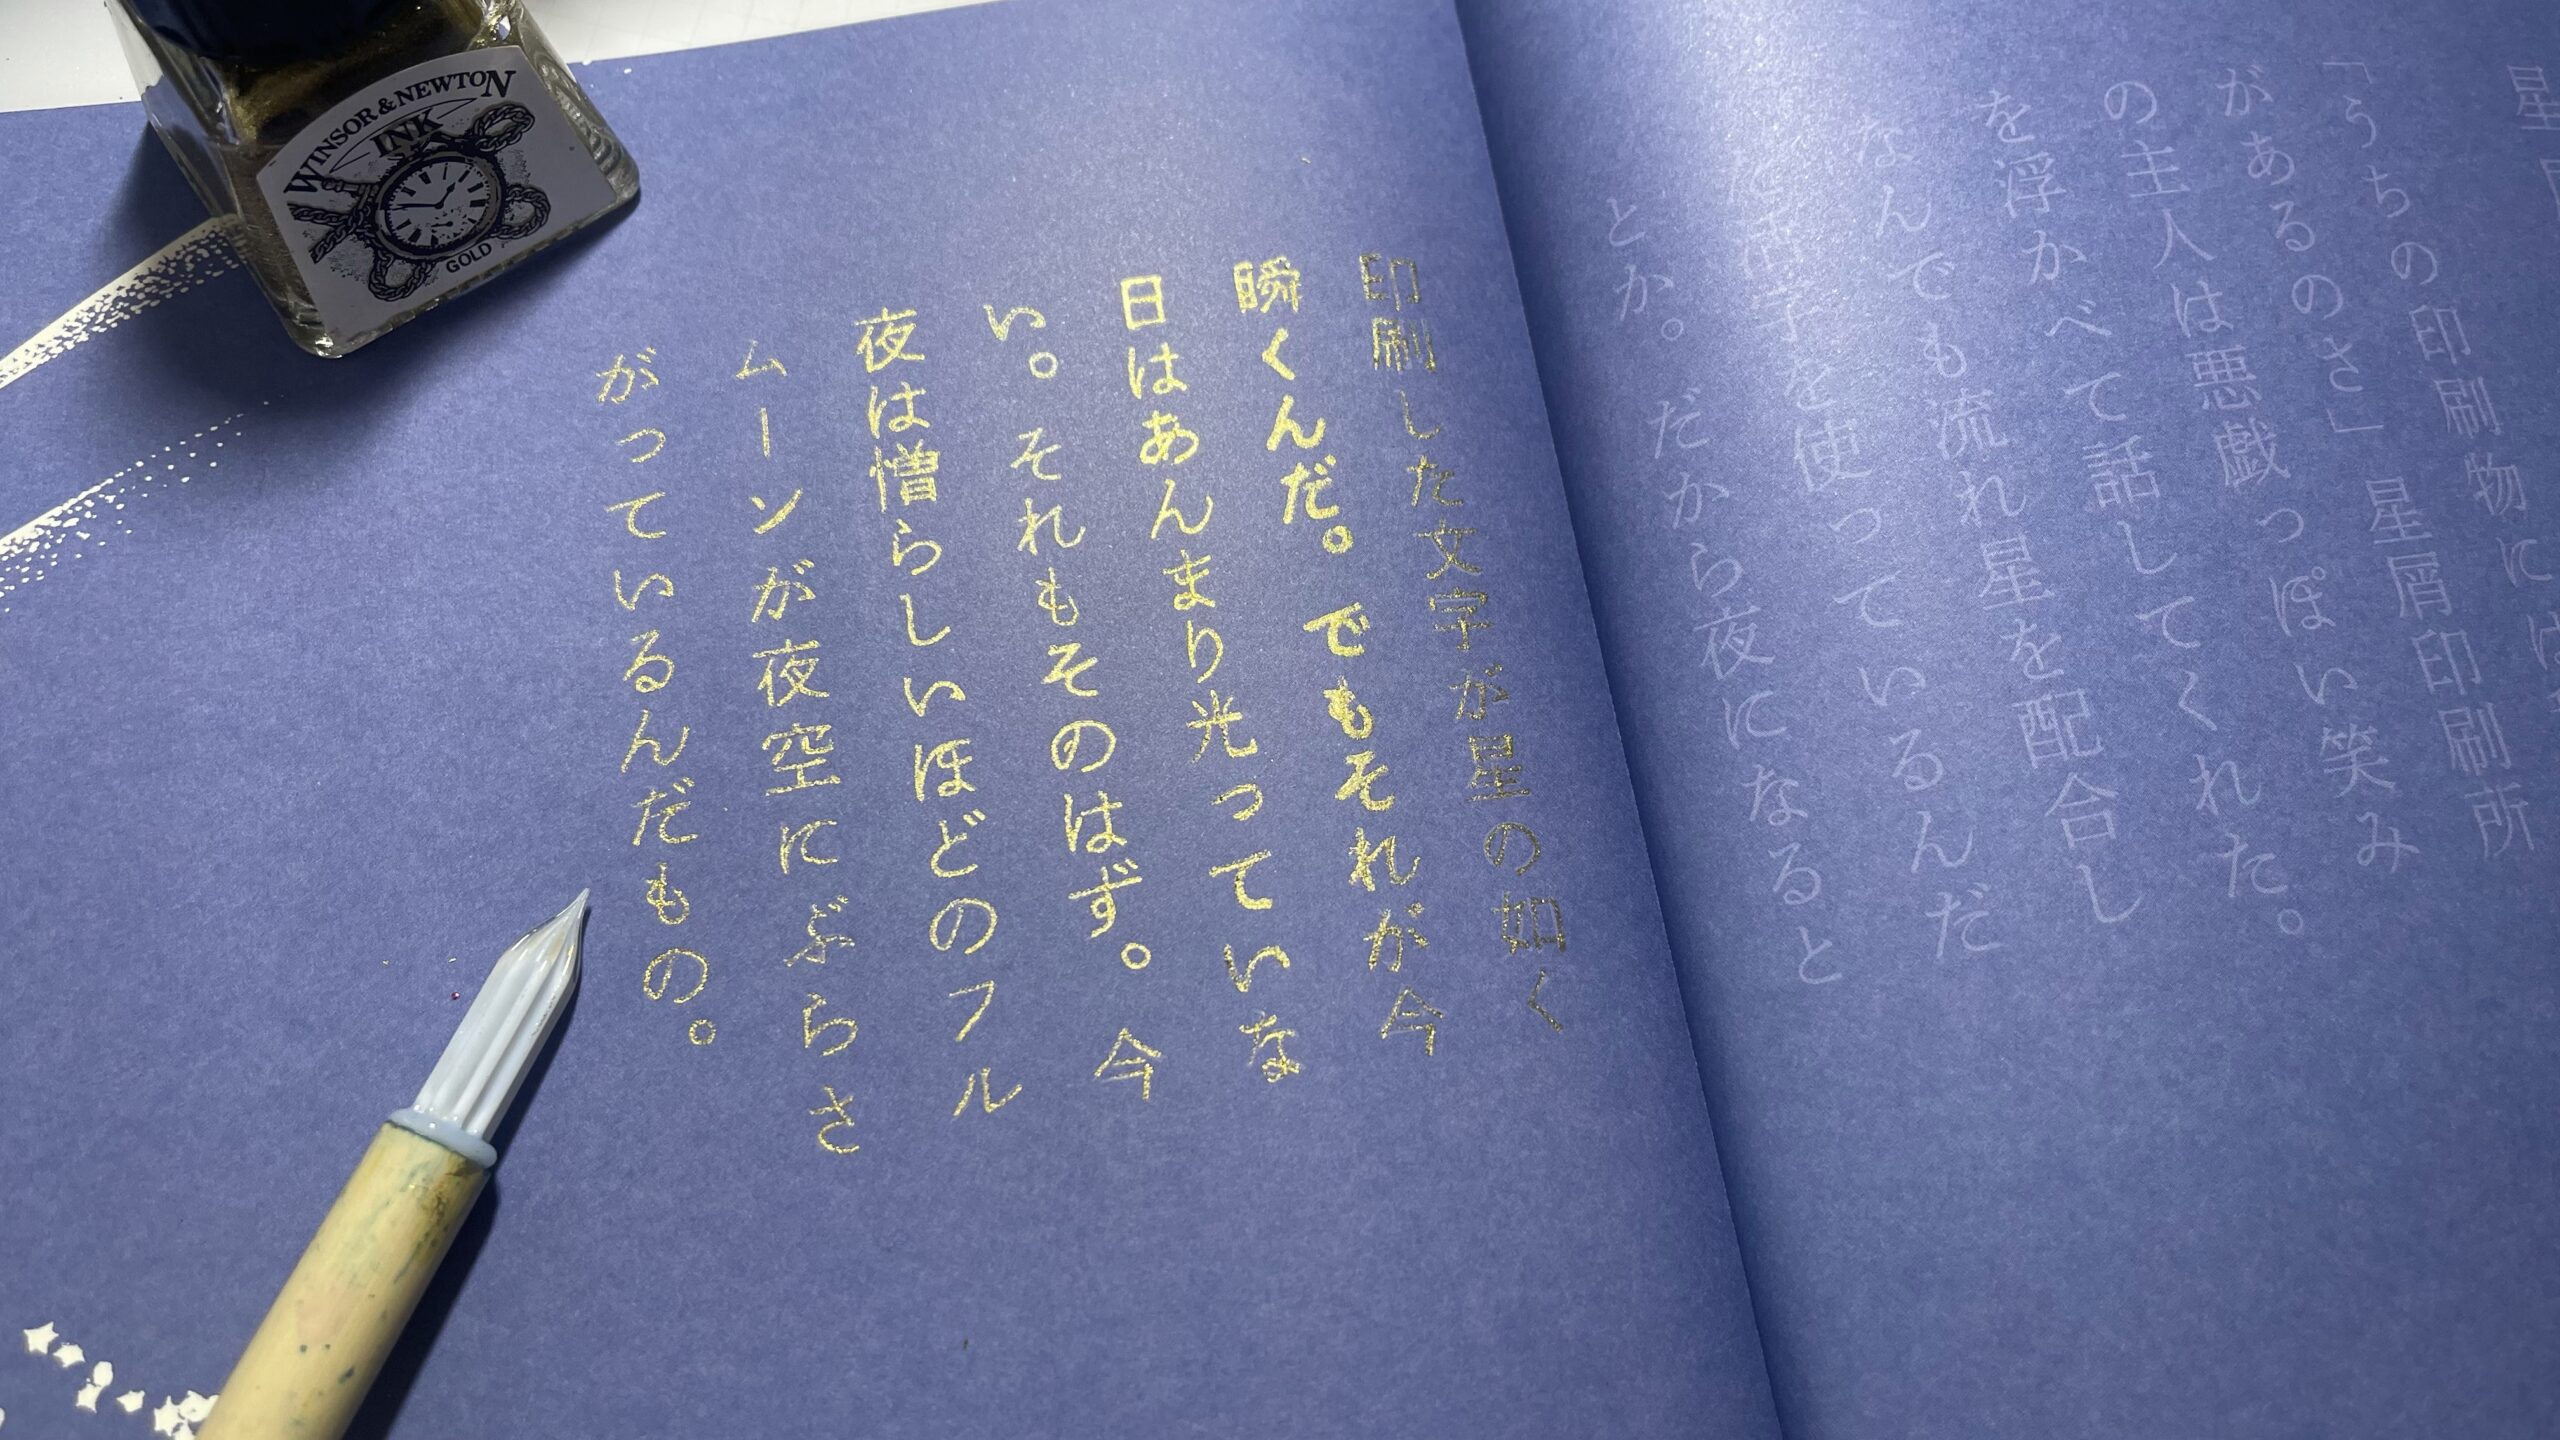 「うちの印刷物には
があるのさ」星屑印刷所
の主人は悪戯っぽい笑み
を浮かべて話してくれた。
なんでも流れ星を配合し
を使っているんだ
とか。だから夜になると
印刷した文字が星の如く
瞬くんだ。でもそれが今
日はあんまり光っていな
い。それもそのはず。今
夜は憎らしいほどのフル
ムーンが夜空にぶらさ
がっているんだもの。
WINSOR & NEWTON
INK
GOLD